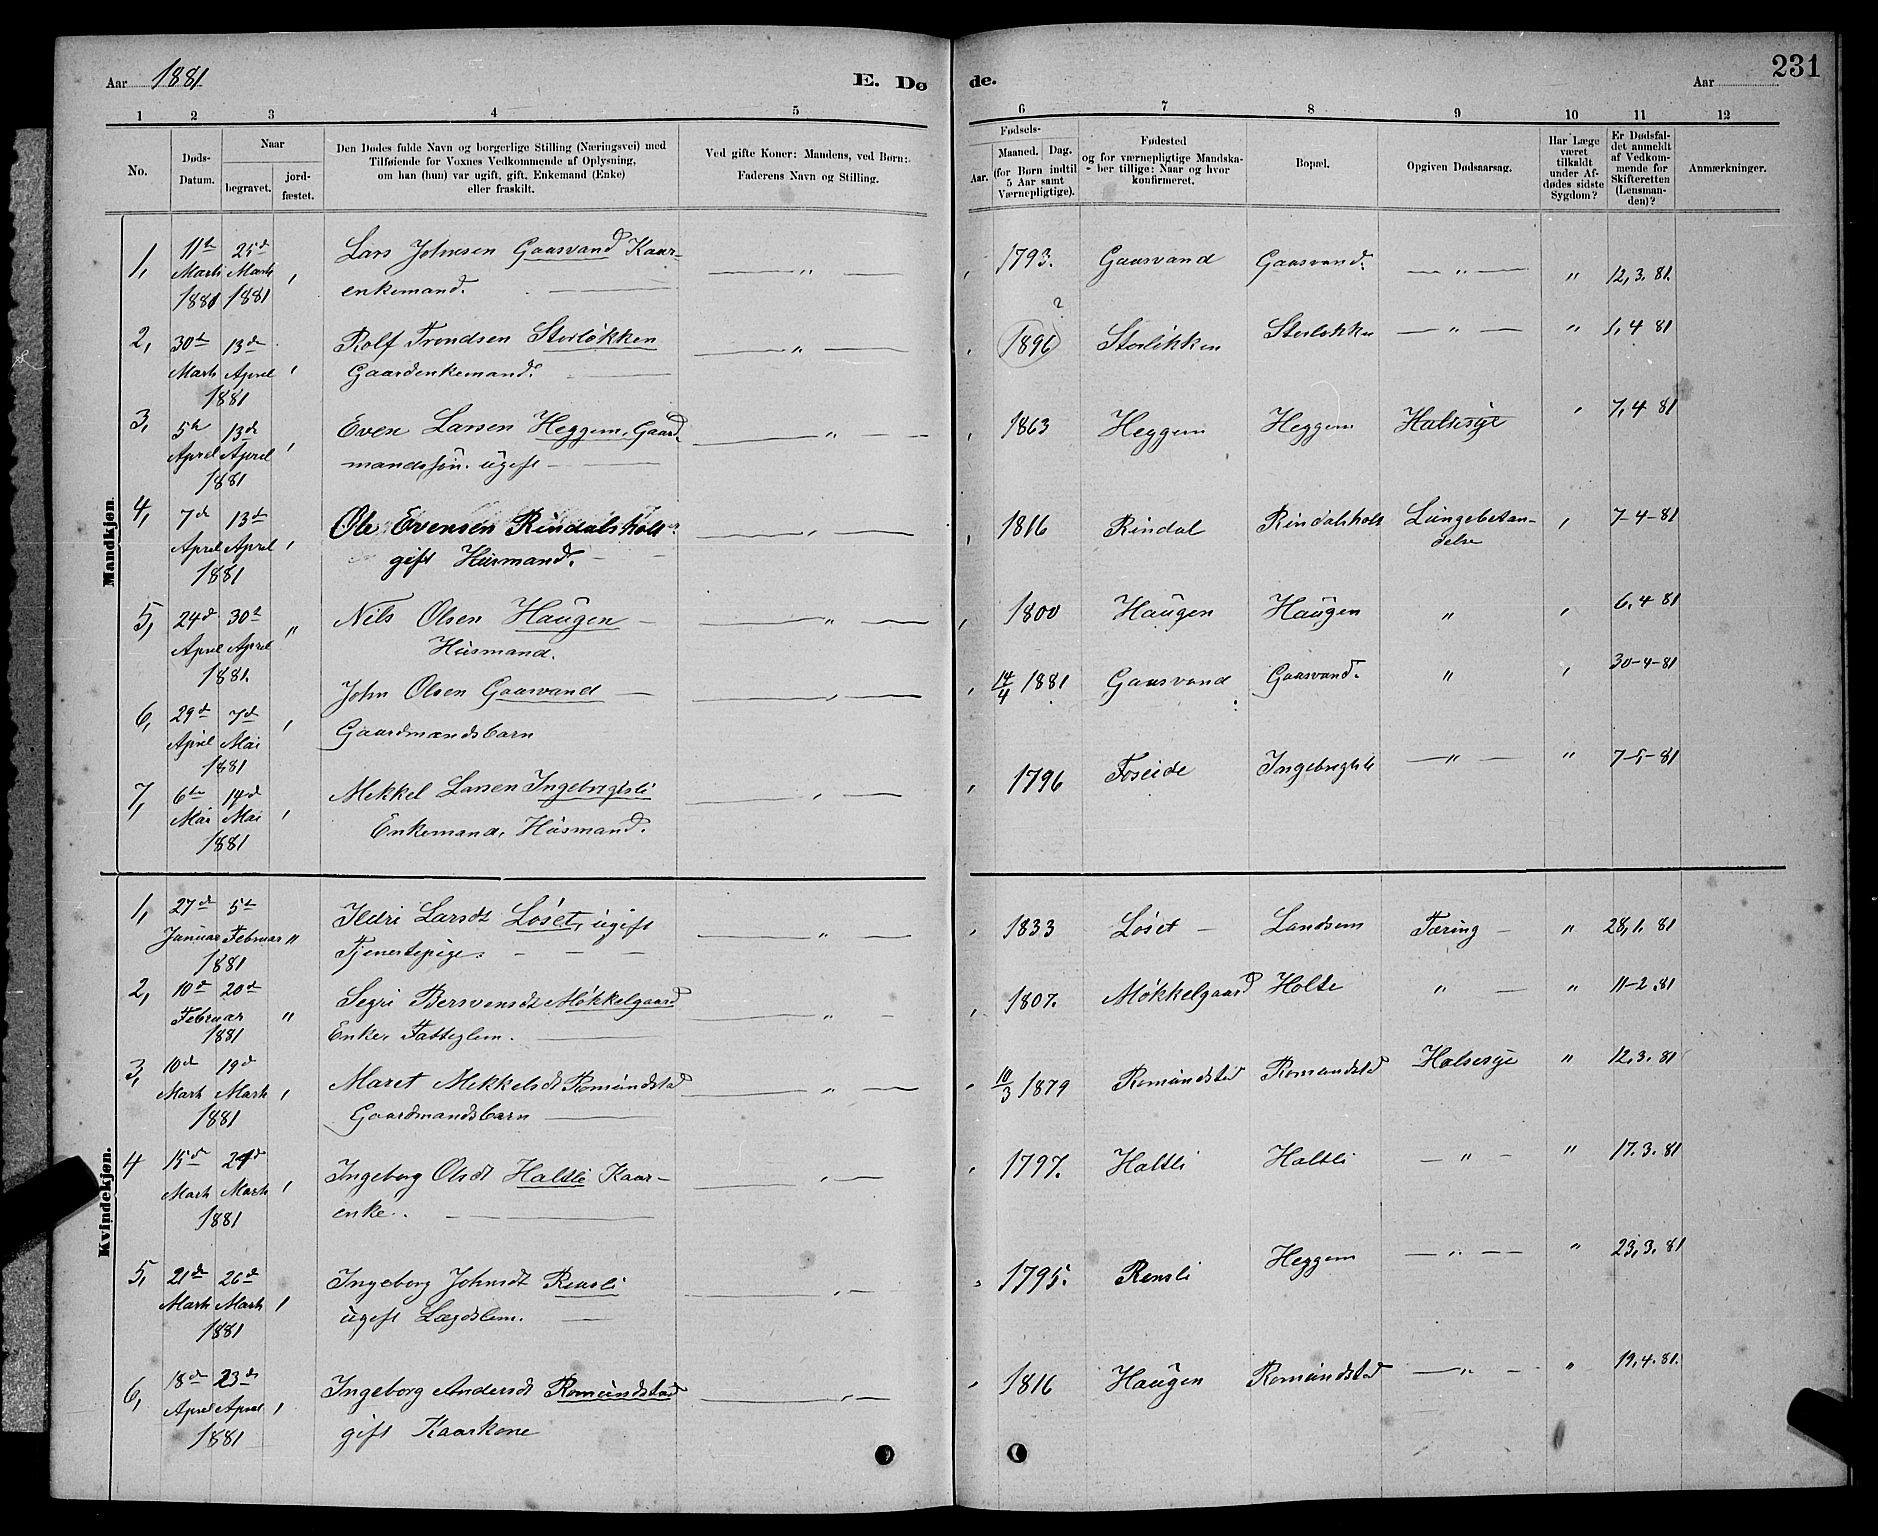 Aar 1881
E. Dø
de.
Aar
231
1 2 3 4 5 6 7 8 9 10 11 12
No.
Døds-
Datum.
Naar
begravet.
jord-
fæstet.
Den Dødes fulde Navn og borgerlige Stilling (Næringsvei) med
Tilføiende for Voxnes Vedkommende af Oplysning,
om han (hun) var ugift, gift, Enkemand (Enke)
eller fraskilt.
Ved gifte Koner: Mandens, ved Børn:
Faderens Navn og Stilling.
Fødsels-
Aar. Maaned. Dag.
(for Børn indtil
5 Aar samt
Værnepligtige).
Fødested
og for værnepligtige Mandska-
ber tillige: Naar og hvor
konfirmeret.
Bopæl.
Opgiven Dødsaarsag.
Har Læge
været
tilkaldt
under Af-
dødes sidste
Sygdom?
Er Dødsfal-
det anmeldt
af Vedkom-
mende for
Skifteretten
(Lensman-
den)?
Anmærkninger.
Mandkjøn.
1, 11te 25d Lars Johnsen Gaasvand Kaar- — " — 1793. Gaasvand Gaasvand. — " — " 12,3.81.
Marts Marts , enkemand.
1881 1881
2, 30te 13de Rolf Trondsen Storløkken — " — 1896 ? Storløkken Storløkken — " — " 1,4 81
Marts April , Gaardenkemand.
1881
3, 5te 13de Even Larsen Heggem, Gaard — " — 1863 Heggem Heggem Halsesyge , 7,4 81
April April , mandssøn. ugift
1881
4, 7de 13de Ole Evensen Rindalsholt — , — 1816 Rindal Rindalsholt Lungebetæn- , 7-4-81
delse
April April , gift Husmand.
1881
5, 24d 30te Nils Olsen Haugen — " — 1800 Haugen Haugen " , 6,4 81
April April " Husmand.
1881.
6, 29de 7de John Olsen Gaasvand — , — 14/4 1881 Gaasvand Gaasvand. " , 30-4-81
April Mai , Gaardmandsbarn
1881
7, 6te 14de Mikkel Larsen Ingebrigtsli — , — 1796 Foseide Ingebrigtsli — " — " 7-5-81
Mai Mai , Enkemand, Husmand.
1881
Kvindekjøn.
1, 27de 5te Ildri Larsdt Løset, ugift — " — 1833 Løset Landsem Tæring " 28,1.81
Januar Februar " Tjenestepige.
1881
2, 10de 20de Segri Bersvensdt Møkkelgaard — " — 1807. Møkkelgaard Holte " — " 11-2.81
Februar " Enke, Fattiglem.
1881
3, 10de 19de Maret Mikkelsdt Romundstad — " — 10/3 1879 Romundstad Romundstad Halsesyge " 12.3.81
Marts Marts , Gaardmandsbarn
1881
4 15de 24de Ingeborg Olsdt Haltli Kaar- — , — 1797. Haltli Haltli — " — " 17.3.81
Marts Marts , enke.
1881
5, 21de 26de Ingeborg Johnsdt Rensli — , — 1795. Rensli Heggem — " — " 23,3.81
Marts Marts , ugift Lægdslem.
1881
6, 18de 23de Ingeborg Andersdt Romundstad — , — 1816 Haugen Romundstad — " — " 19,4.81.
April April , gift Kaarkone
1881